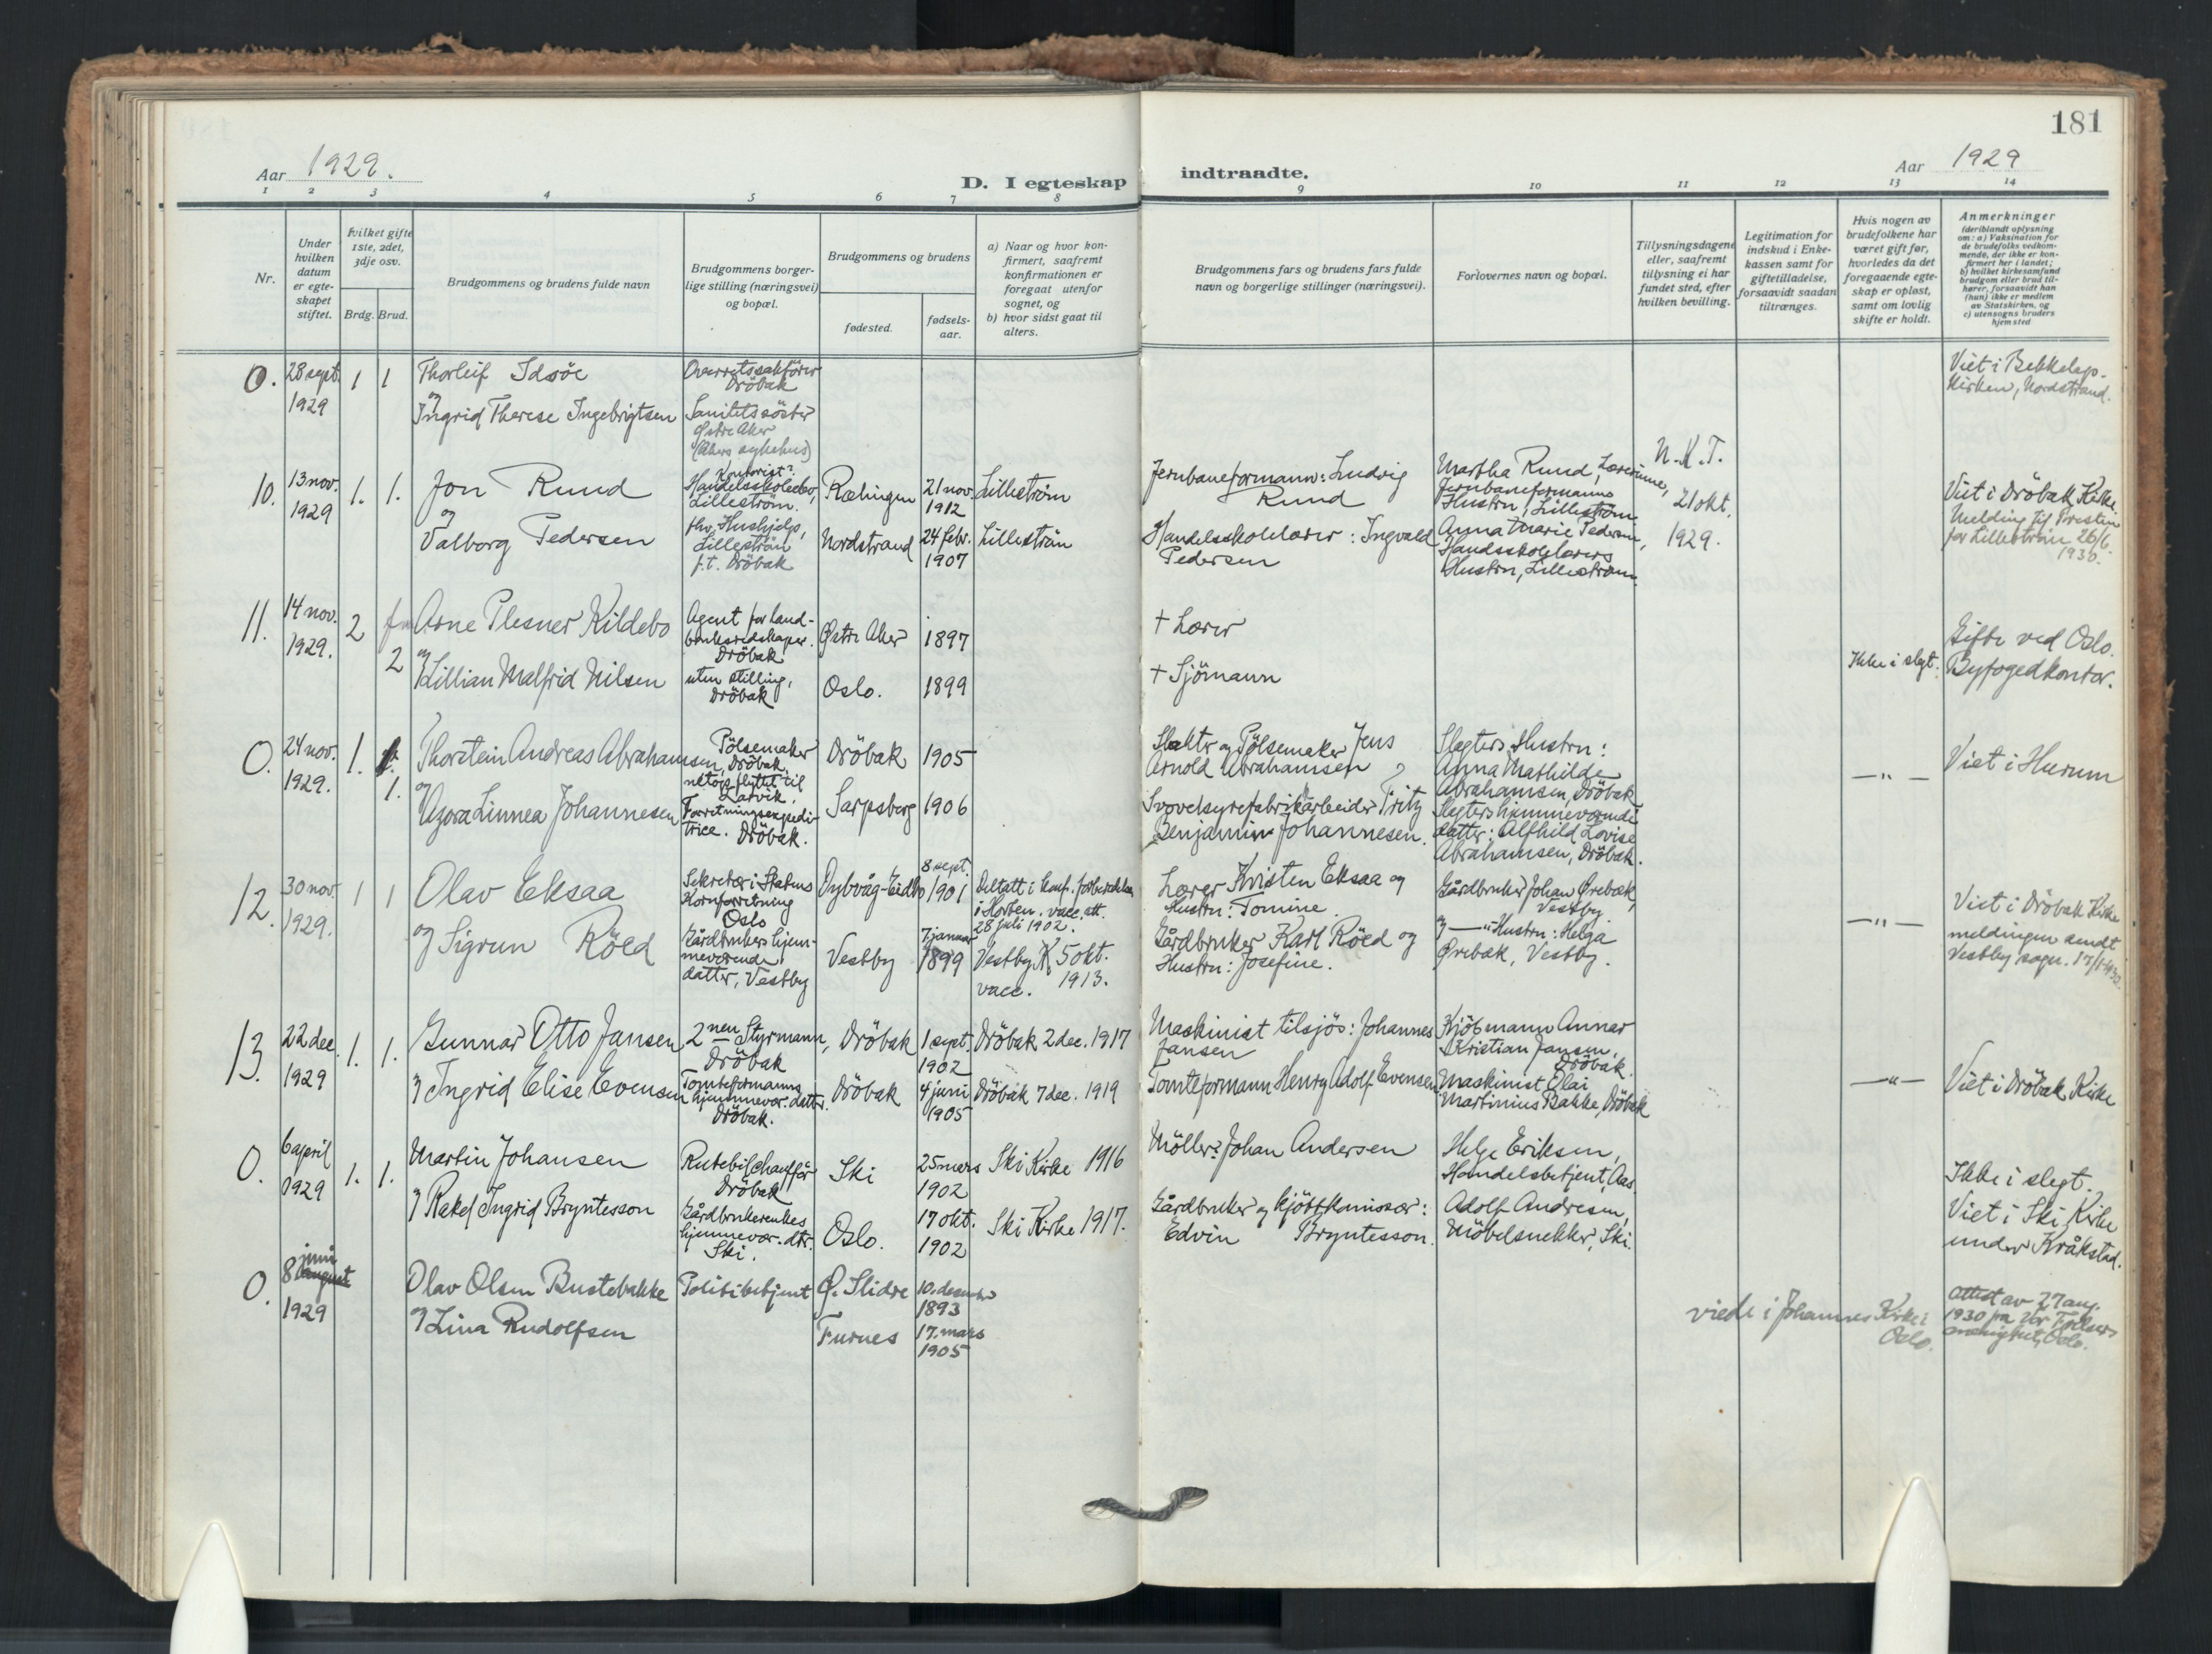 181
Aar 1929.
D. I egteskap indtraadte.
Aar 1929
1 2 3 4 5 6 7 8 9 10 11 12 13 14
Nr.
Under hvilken datum er egteskapet stiftet.
hvilket gifte 1ste, 2det, 3dje osv.
Brdg. Brud.
Brudgommens og brudens fulde navn
Brudgommens borgerlige stilling (næringsvei) og bopæl.
Brudgommens og brudens
fødested.
fødselsaar.
a) Naar og hvor konfirmert, saafremt konfirmationen er foregaat utenfor sognet, og
b) hvor sidst gaat til alters.
Brudgommens fars og brudens fars fulde navn og borgerlige stillinger (næringsvei).
Forlovernes navn og bopæl.
Tillysningsdagene eller, saafremt tillysning ei har fundet sted, efter hvilken bevilling.
Legitimation for indskud i Enkekassen samt for giftetilladelse, forsaavidt saadan tiltrænges.
Hvis nogen av brudefolkene har været gift før, hvorledes da det foregaaende egteskap er opløst, samt om lovlig skifte er holdt.
Anmerkninger
(deriblandt oplysning om: a) Vaksination for de brudefolks vedkommende, der ikke er konfirmert her i landet;
b) hvilket kirkesamfund brudgom eller brud tilhører, forsaavidt han (hun) ikke er medlem av Statskirken, og
c) utensogns bruders hjemsted
0. 28 sept. 1929 1 1
Thorleif Idsöe
og Ingrid Therese Ingebrigtsen
Overretssakförer Dröbak
Sanitetssöster Östre Aker (Akers sykehus)
Viet i Bekkelagskirken, Nordstrand.
10. 13 nov. 1929 1. 1.
Jon Ruud
og Valborg Pedersen
Kontorist? Handelsskoleelev, Lilleström.
fhv. Hushjelp, Lilleström p.t. Dröbak
Rælingen 21 nov. 1912 Lilleström
Nordstrand 24 febr. 1907 Lilleström
Jernbaneformann: Ludvig Ruud
Handelsskolelærer: Ingvald Pedersen
Martha Ruud, Lærerinne, Jernbaneformanns Hustru, Lilleström
Anna Marie Pedersen, Handsskolelærers Hustru, Lilleström.
N.K.T.
21 okt. 1929.
Viet i Dröbak Kirke.
Melding til Presten for Lilleström 26/6. 1930.
11. 14 nov. 1929. 2 2
Arne Plesner Kildebo
og Lillian Malfrid Nilsen
Agent for landbruksredskaper. Dröbak
uten stilling, Dröbak
Østre Aker 1897
Oslo. 1899
† Lærer
† Sjömann
Ikke i slegt.
Gifte ved Oslo Byfogedkontor.
0. 24 nov. 1929. 1. 1.
Thorstein Andreas Abrahamsen,
og Agora Linnea Johannesen
Pölsemaker Dröbak, netop flyttet til Larvik.
Forretningsexpeditrice. Dröbak.
Dröbak 1905
Sarpsborg 1906
Slakter og Pölsemaker Jens Arnold Abrahamsen
Svovelsyrefabrikarbeider Fritz Benjamin Johannesen.
Slagters Hustru: Anna Mathilde Abrahamsen, Dröbak
Slagters hjemmeværende datter: Alfhild Lovise Abrahamsen, Dröbak.
—"—
Viet i Hurum
12. 30 nov. 1929. 1 1
Olav Eksaa
og Sigrun Röed
Sekretær i Statens Kornforretning Oslo
Gårdbrukers hjemmeværende datter, Vestby
8 sept. 1901
Deltatt i konf. forberedelse i Horten. vacc. att. 28 juli 1902.
Vestby 7 januar 1899 Vestby K. 5 okt. 1913. vacc.
Lærer Kristen Eksaa og Hustru: Tomine.
Gårdbruker Karl Röed og Hustru: Josefine.
Gårdbruker Johan Ørebæk, Vestby
og —"— Hustru: Helga Ørebæk, Vestby.
—"—
Viet i Dröbak Kirke
meldingen sendt Vestby sogn.
13. 22 dec. 1929 1. 1.
Gunnar Otto Jansen
og Ingrid Elise Evensen
2nen Styrmann, Dröbak
Tomteformanns hjemmevær. datter. Dröbak.
Dröbak 1 sept. 1902 Dröbak 2 dec. 1917
Dröbak 4 juni 1905 Dröbak 7 dec. 1919
Maskinist tilsjös: Johannes Jansen
Tomteformann Henry Adolf Evensen
Kjöbmann Annar Kristian Jansen, Dröbak.
Maskinist Olai Martinius Bakke, Dröbak
—"—
Viet i Dröbak Kirke
0. 6 april 1929 1. 1.
Martin Johansen
og Rakel Ingrid Bryntesson
Rutebilchaufför Dröbak
Gårdbrukerenkes hjemmevær. dtr. Ski.
Ski 25 mars 1902 Ski Kirke 1916
Oslo. 17 okt. 1902 Ski Kirke 1917.
Möller: Johan Andersen
Gårdbruker og kjöttkomissær: Edvin Bryntesson.
Helge Eriksen, Handelsbetjent, Aas.
Adolf Andresen, Möbelsnekker, Ski.
Ikke i slegt.
Viet i Ski Kirke under Kråkstad.
0. 8 juni august 1929
Olav Olsen Bustebakke
og Lina Rudolfsen
Politibetjent
Ø. Slidre 10. desember 1893
Furnes 17. mars 1905
viede i Johannes Kirke i Oslo.
Attest av 27 aug. 1930 fra menighet, Oslo.